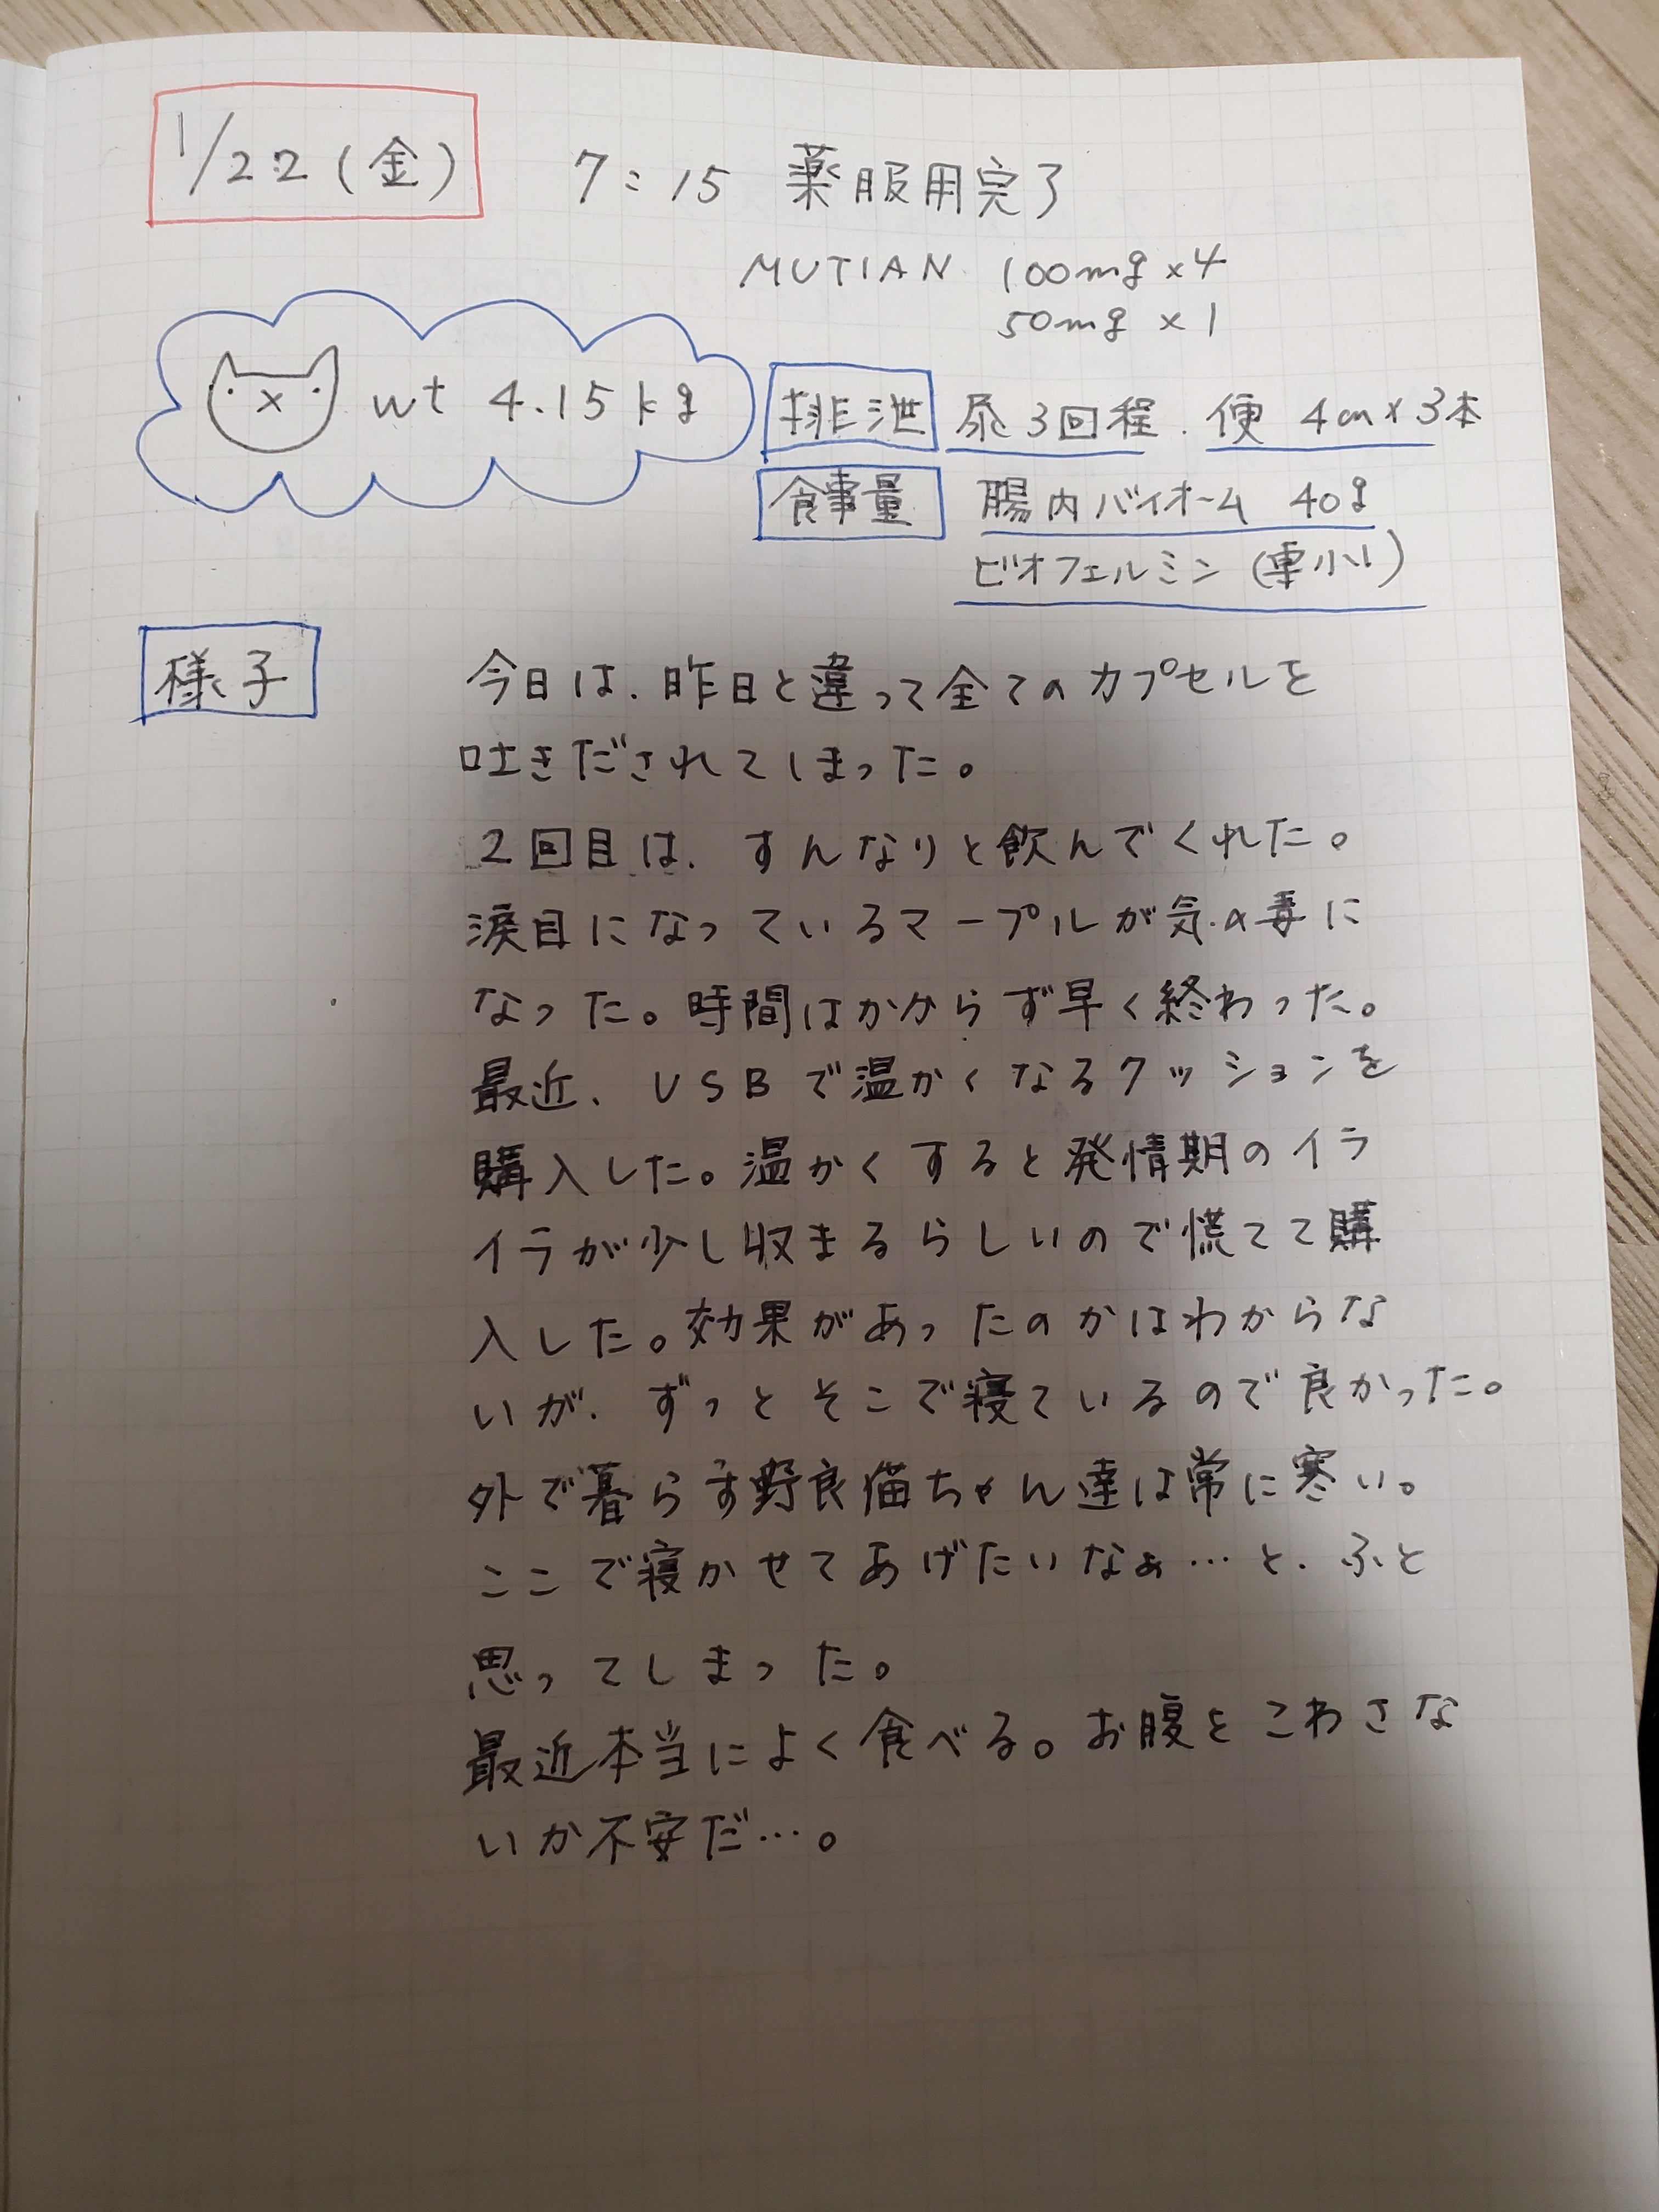 1/22(金)
7:15 薬服用完了
MUTIAN 100mg×4
50mg×1
wt 4.15kg
排泄 尿3回程. 便 4cm×3本
食事量 腸内バイオーム 40g
ビオフェルミン(車小1)
様子
今日は、昨日と違って全てのカプセルを
吐きだされてしまった。
2回目は、すんなりと飲んでくれた。
涙目になっているマープルが気の毒に
なった。時間はかからず早く終わった。
最近、USBで温かくなるクッションを
購入した。温かくすると発情期のイラ
イラが少し収まるらしいので慌てて購
入した。効果があったのかはわからな
いが、ずっとそこで寝ているので良かった。
外で暮らす野良猫ちゃん達は常に寒い。
ここで寝かせてあげたいなぁ…と、ふと
思ってしまった。
最近本当によく食べる。お腹をこわさな
いか不安だ…。